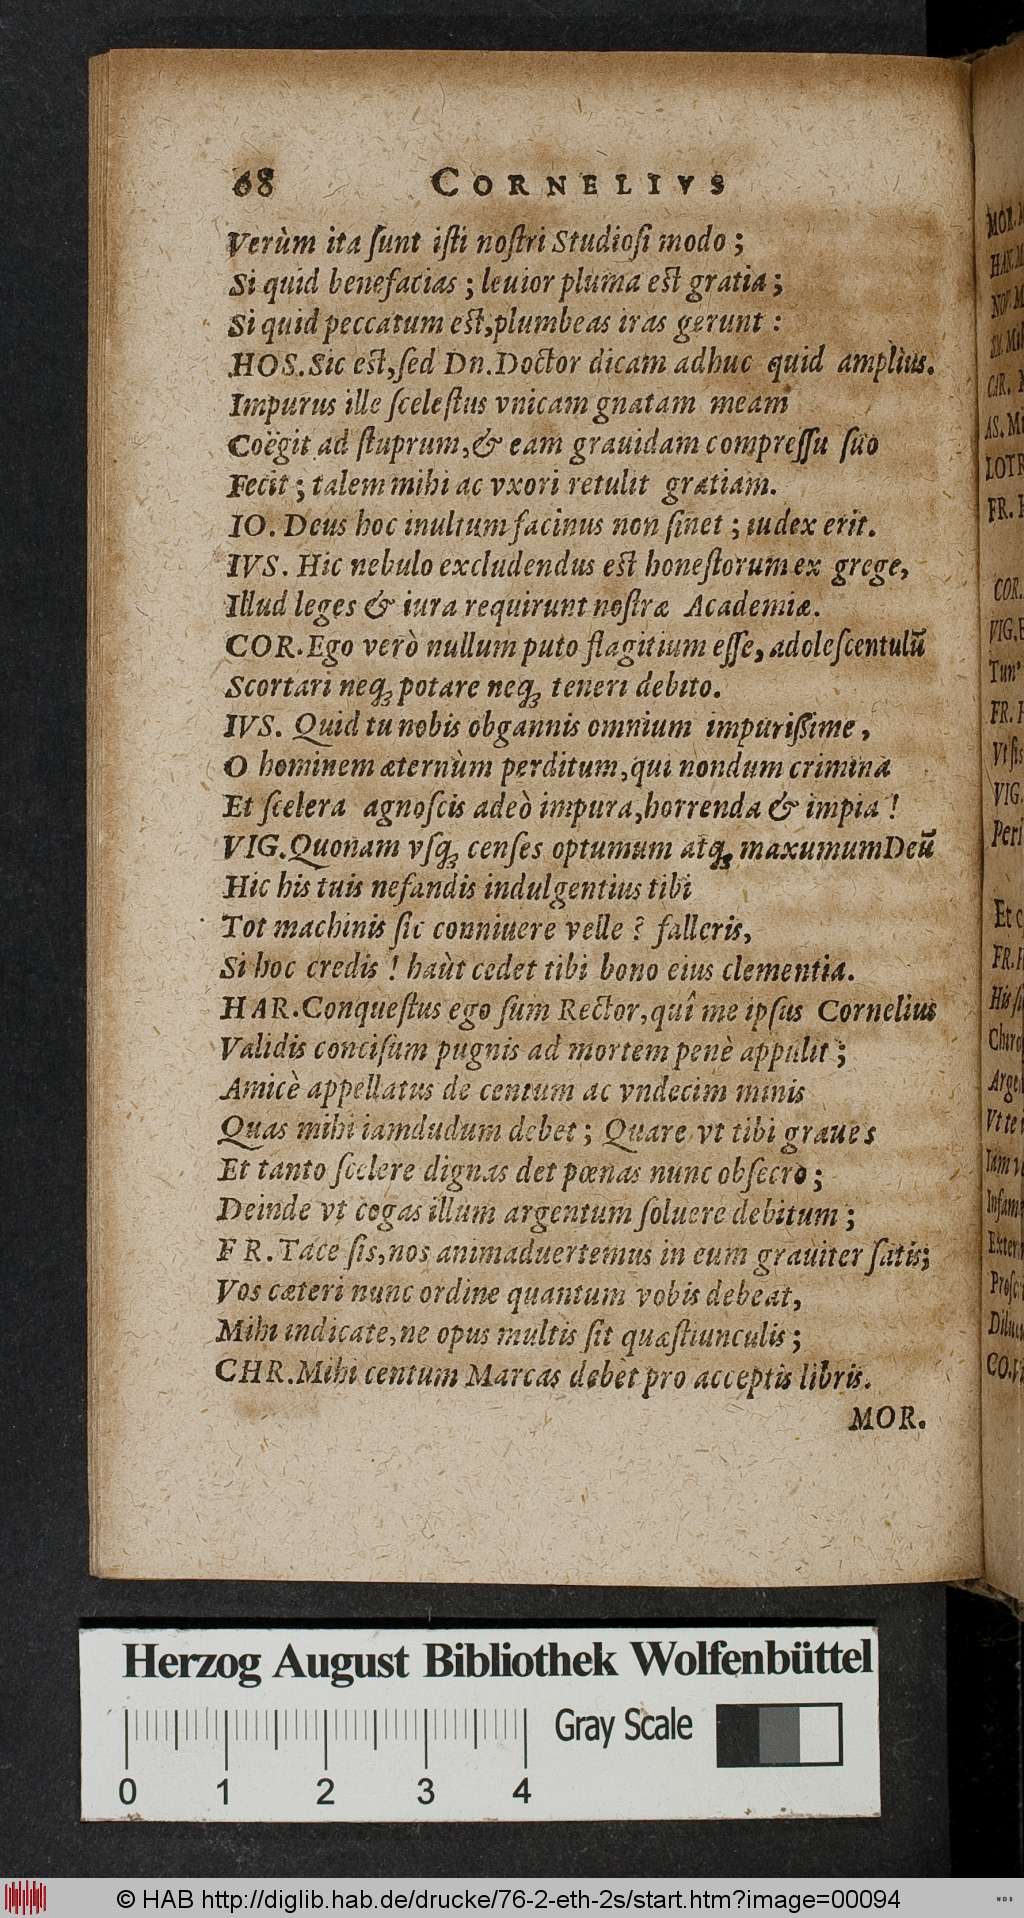 68 CORNELIVS
Verùm ita ſunt iſti noſtri Studioſi modo ;
Si quid benefacias ; leuior pluma eſt gratia ;
Si quid peccatum eſt, plumbeas iras gerunt :
HOS. Sic eſt, ſed Dn. Doctor dicam adhuc quid ampliùs.
Impurus ille ſceleſtus vnicam gnatam meam
Coëgit ad ſtuprum, & eam grauidam compreſſu ſuo
Fecit ; talem mihi ac vxori retulit gratiam.
IO. Deus hoc inultum facinus non ſinet ; iudex erit.
IVS. Hic nebulo excludendus eſt honeſtorum ex grege,
Illud leges & iura requirunt noſtræ Academiæ.
COR. Ego verò nullum puto flagitium eſſe, adoleſcentulū
Scortari neq; potare neq; teneri debito.
IVS. Quid tu nobis obgannis omnium impuriſſime,
O hominem æternùm perditum, qui nondum crimina
Et ſcelera agnoſcis adeò impura, horrenda & impia !
VIG. Quonam vſq; cenſes optumum atq; maxumum Deū
Hic his tuis nefandis indulgentius tibi
Tot machinis ſic conniuere velle ? falleris,
Si hoc credis ! haùt cedet tibi bono eius clementia.
HAR. Conqueſtus ego ſum Rector, quî me ipſus Cornelius
Validis conciſum pugnis ad mortem penè appulit ;
Amicè appellatus de centum ac vndecim minis
Quas mihi iamdudum debet ; Quare vt tibi graues
Et tanto ſcelere dignas det pœnas nunc obſecro ;
Deinde vt cogas illum argentum ſoluere debitum ;
FR. Tace ſis, nos animaduertemus in eum grauiter ſatis;
Vos cæteri nunc ordine quantum vobis debeat,
Mihi indicate, ne opus multis ſit quæſtiunculis ;
CHR. Mihi centum Marcas debet pro acceptis libris.
MOR.
MOR.
HAR.
CAR.
LOTR
FR.
COR.
VIG.
Tun'
FR.
Vt ſis
VIG.
Peri
Et
FR.
Vt te
CO.
Herzog August Bibliothek Wolfenbüttel
Gray Scale
0 1 2 3 4
© HAB http://diglib.hab.de/drucke/76-2-eth-2s/start.htm?image=00094